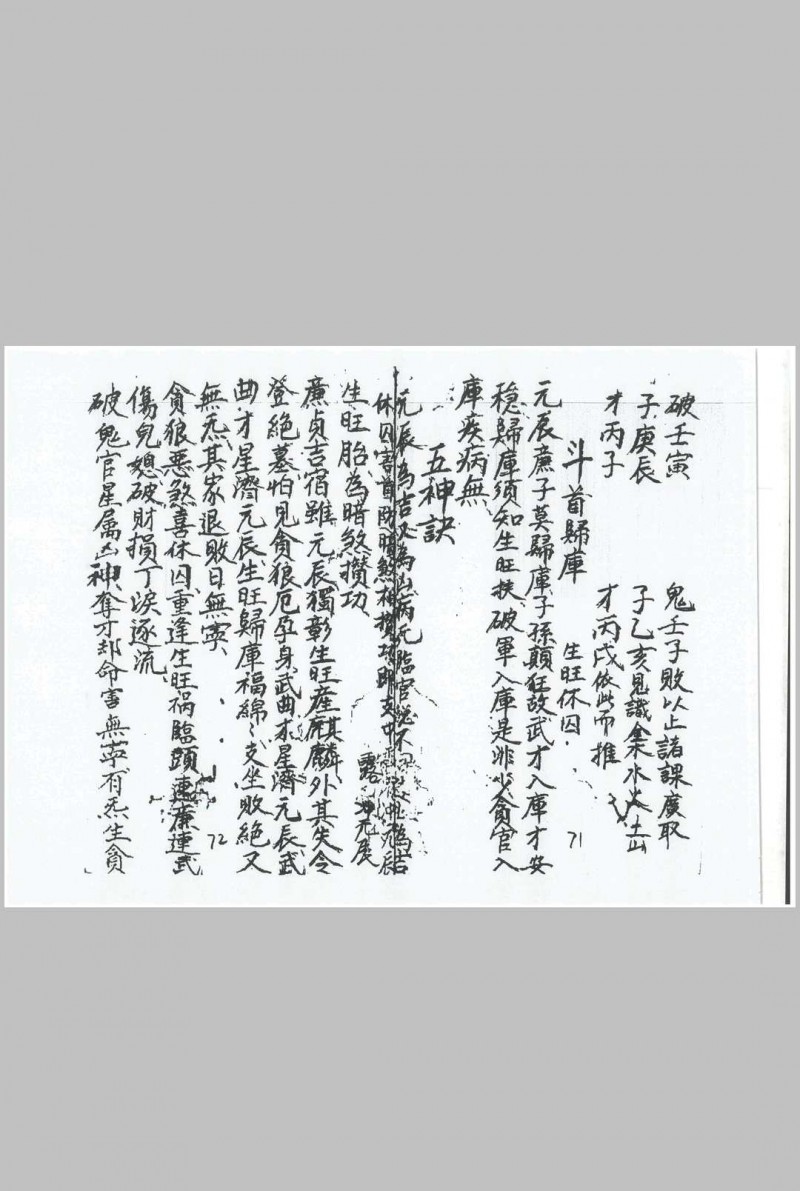 破壬寅　鬼壬子敗以上諸課廣取
子庚辰　子乙亥見識金木水火土
才丙子　才丙戌依此而推
斗首歸庫　生旺休囚
71
元辰廉子莫歸庫子孫顛狂故武才入庫才安
穏歸庫須知生旺扶破軍入庫是非少貪官入
庫疾病無
五神訣
元辰為吉又為凶病元臨官總不
休囚害首既暗煞相攢功郎支中
生旺胎為暗煞攢功　露　元辰
廉貞吉宿雖元辰獨彰生旺産麒麟外其失令
登絶墓怕見貪狼厄孕身武曲才星濟元辰武
曲才星濟元辰生旺歸庫福綿〻支坐敗絶又
無炁其家退敗日無寧
72
貪狼惡煞喜休囚重逢生旺禍臨頭連廉連武
傷兒媳破財損丁淚逐流
破鬼官星属凶神奪才却命害無寧有炁生貪